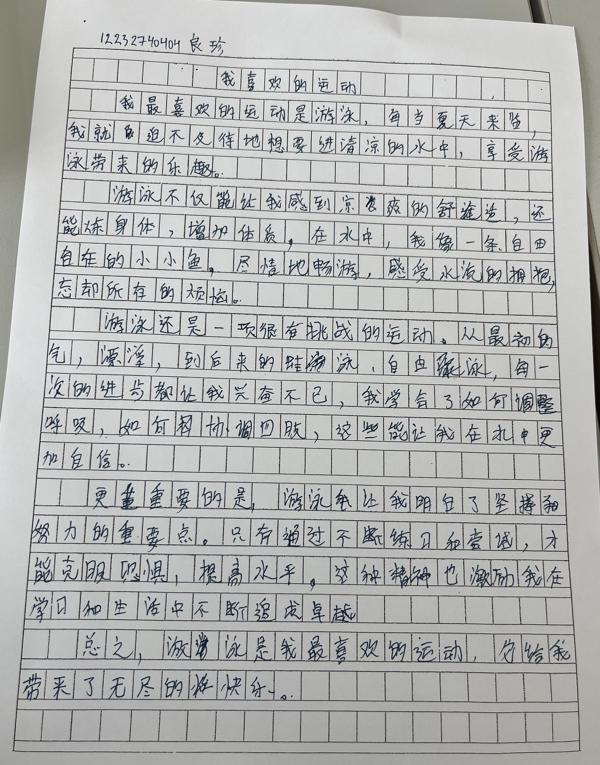 12232740404 良珍
我喜欢的运动
我最喜欢的运动是游泳，每当夏天来临，
我就迫不及待地想要进清凉的水中，享受游
泳带来的乐趣。
游泳不仅能让我感到凉爽的舒适，还
能炼身体，增加体质。在水中，我像一条自由
自在的小小鱼，尽情地畅游，感受水流的拥抱，
忘却所有的烦恼。
游泳还是一项很有挑战的运动。从最初的
气，漂浮，到后来的蛙泳，自由泳，每一
次的进步都让我兴奋不已，我学会了如何调整
呼吸，如何协调四肢，这些能让我在水中更
加自信。
更重要的是，游泳让我明白了坚持和
努力的重要点。只有通过不断练习和尝试，才
能克服恐惧，提高水平。这种精神也激励我在
学习和生活中不断追求卓越
总之，游泳是我最喜欢的运动，它给我
带来了无尽的快乐。